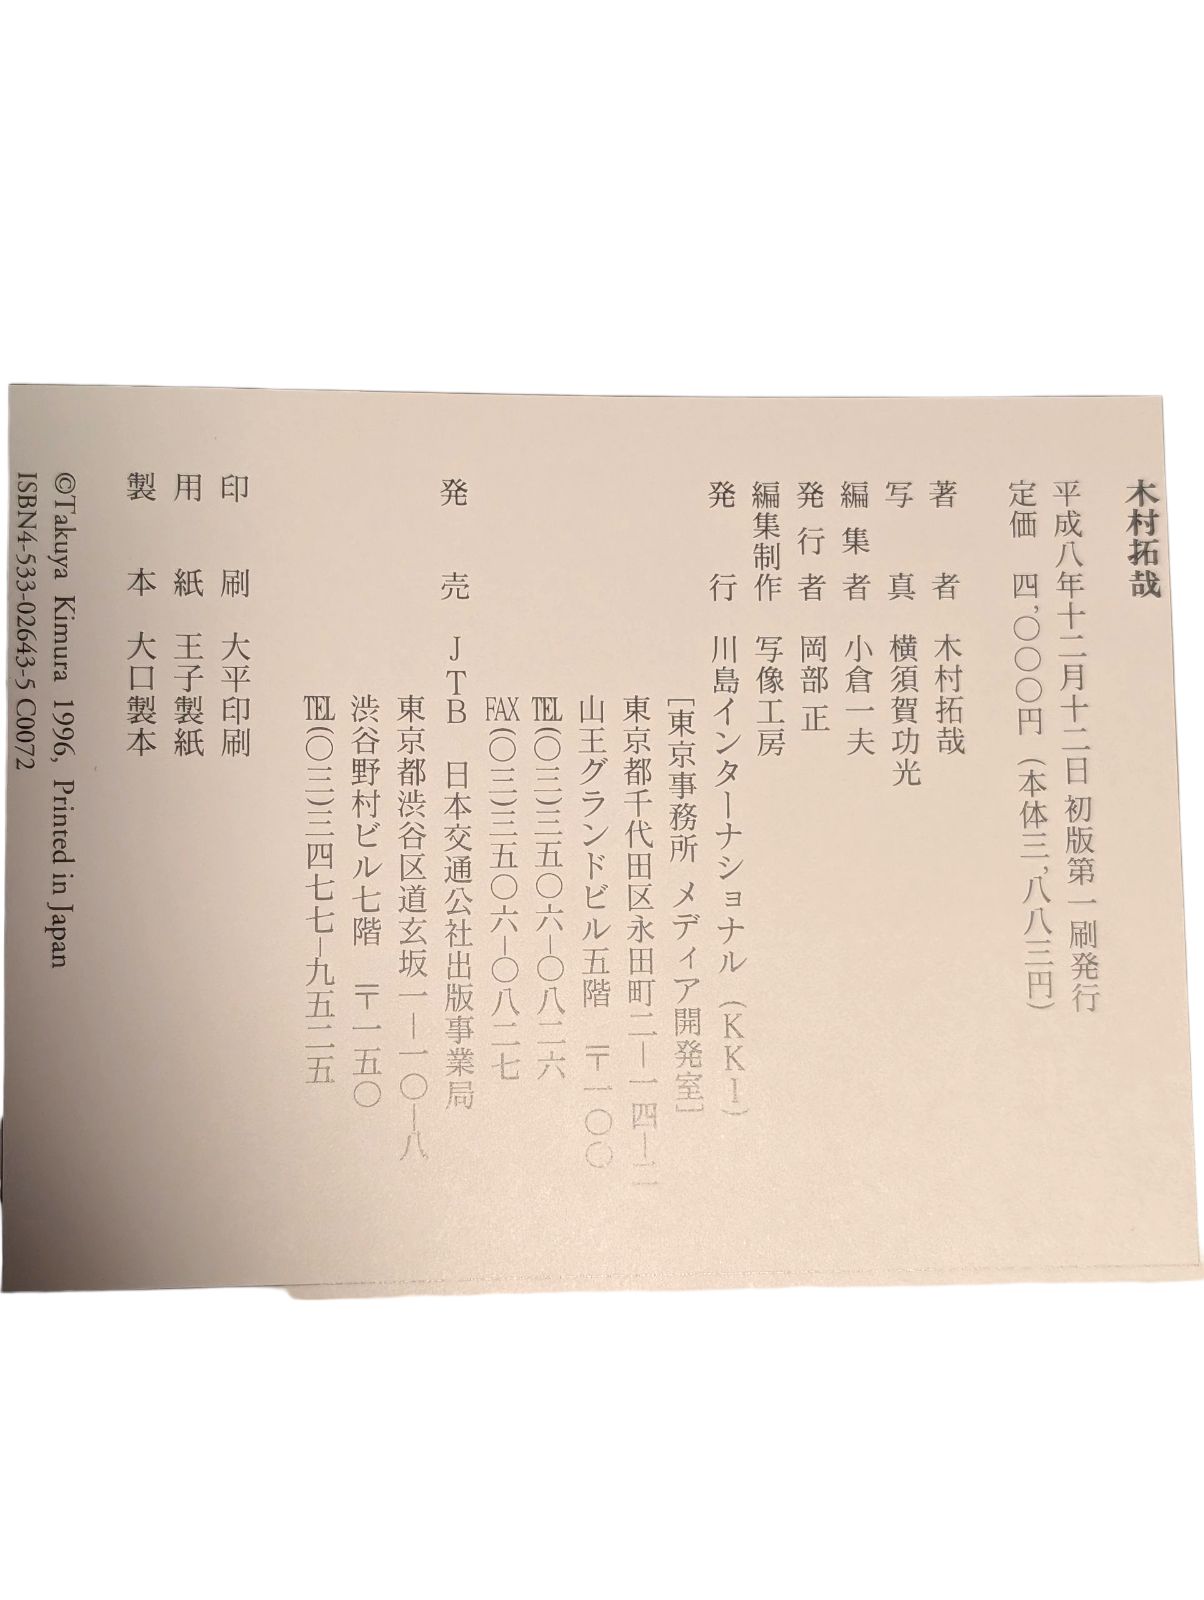 木村拓哉
平成八年十二月十二日 初版第一刷発行
定価 四,〇〇〇円 (本体三,八八三円)
著者 木村拓哉
写真 横須賀功光
編集者 小倉一夫
発行者 岡部 正
編集制作 写像工房
発行 川島インターナショナル (KKI)
[東京事務所 メディア開発室]
東京都千代田区永田町二―一四―二
山王グランドビル五階 〒一〇〇
TEL(〇三)三五〇六―〇八二六
FAX(〇三)三五〇六―〇八二七
発売 JTB 日本交通公社出版事業局
東京都渋谷区道玄坂一―一〇―八
渋谷野村ビル七階 〒一五〇
TEL(〇三)三四七七―九五二五
印刷 大平印刷
用紙 王子製紙
製本 大口製本
©Takuya Kimura 1996, Printed in Japan
ISBN4-533-02643-5 C0072